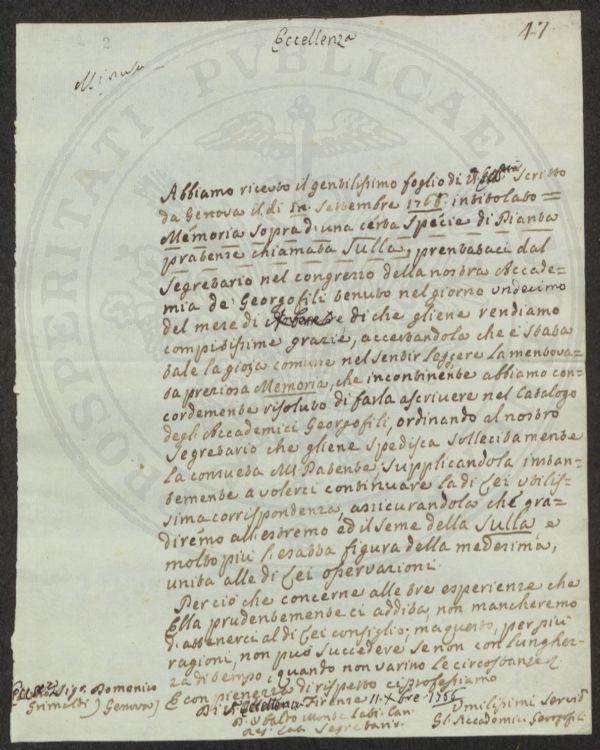 47
2
Eccellenza
Minuta
Abbiamo ricevuto il gentilissimo foglio di Scritto
da Genova il dì Settembre 1766. intitolato =
Memoria Sopra d'una certa Specie di Pianta
pratense chiamata Sulla, presentataci dal
Segretario nel congresso della nostra Accade=
mia de' Georgofili tenuto nel giorno undecimo
del mese di di che gliene rendiamo
compitissime grazie, accertandola che è stata
tale la gioja comune nel sentir leggere la mentova=
ta preziosa Memoria, che incontinente abbiamo con=
cordemente risoluto di farla ascrivere nel Catalogo
degli Accademici Georgofili, ordinando al nostro
Segretario che gliene Spedisca Sollecitamente
la consueta Patente Supplicandola instan=
temente a volerci continuare la di Lei utilis=
sima corrispondenza, assicurandola che gra=
diremo all'estremo ed il seme della Sulla, e
molto più l'esatta figura della medesima,
unita alle di Lei osservazioni.
Per ciò che concerne alle tre esperienze che
Ella prudentemente ci addita, non mancheremo
d'attenerci al di Lei consiglio; ma questo, per più
ragioni, non può succedere se non con lunghez=
za di tempo: quando non varino le circostanze.
E con pienezza di rispetto ci professiamo
Di Eccellenza Firenze 11. Xbre 1766
Sigr. Domenico
Grimaldi) Genova)
Umilissimi Servi
Gli Accademici Georgofili
Segretario
PROSPERITATI PVBLICAE